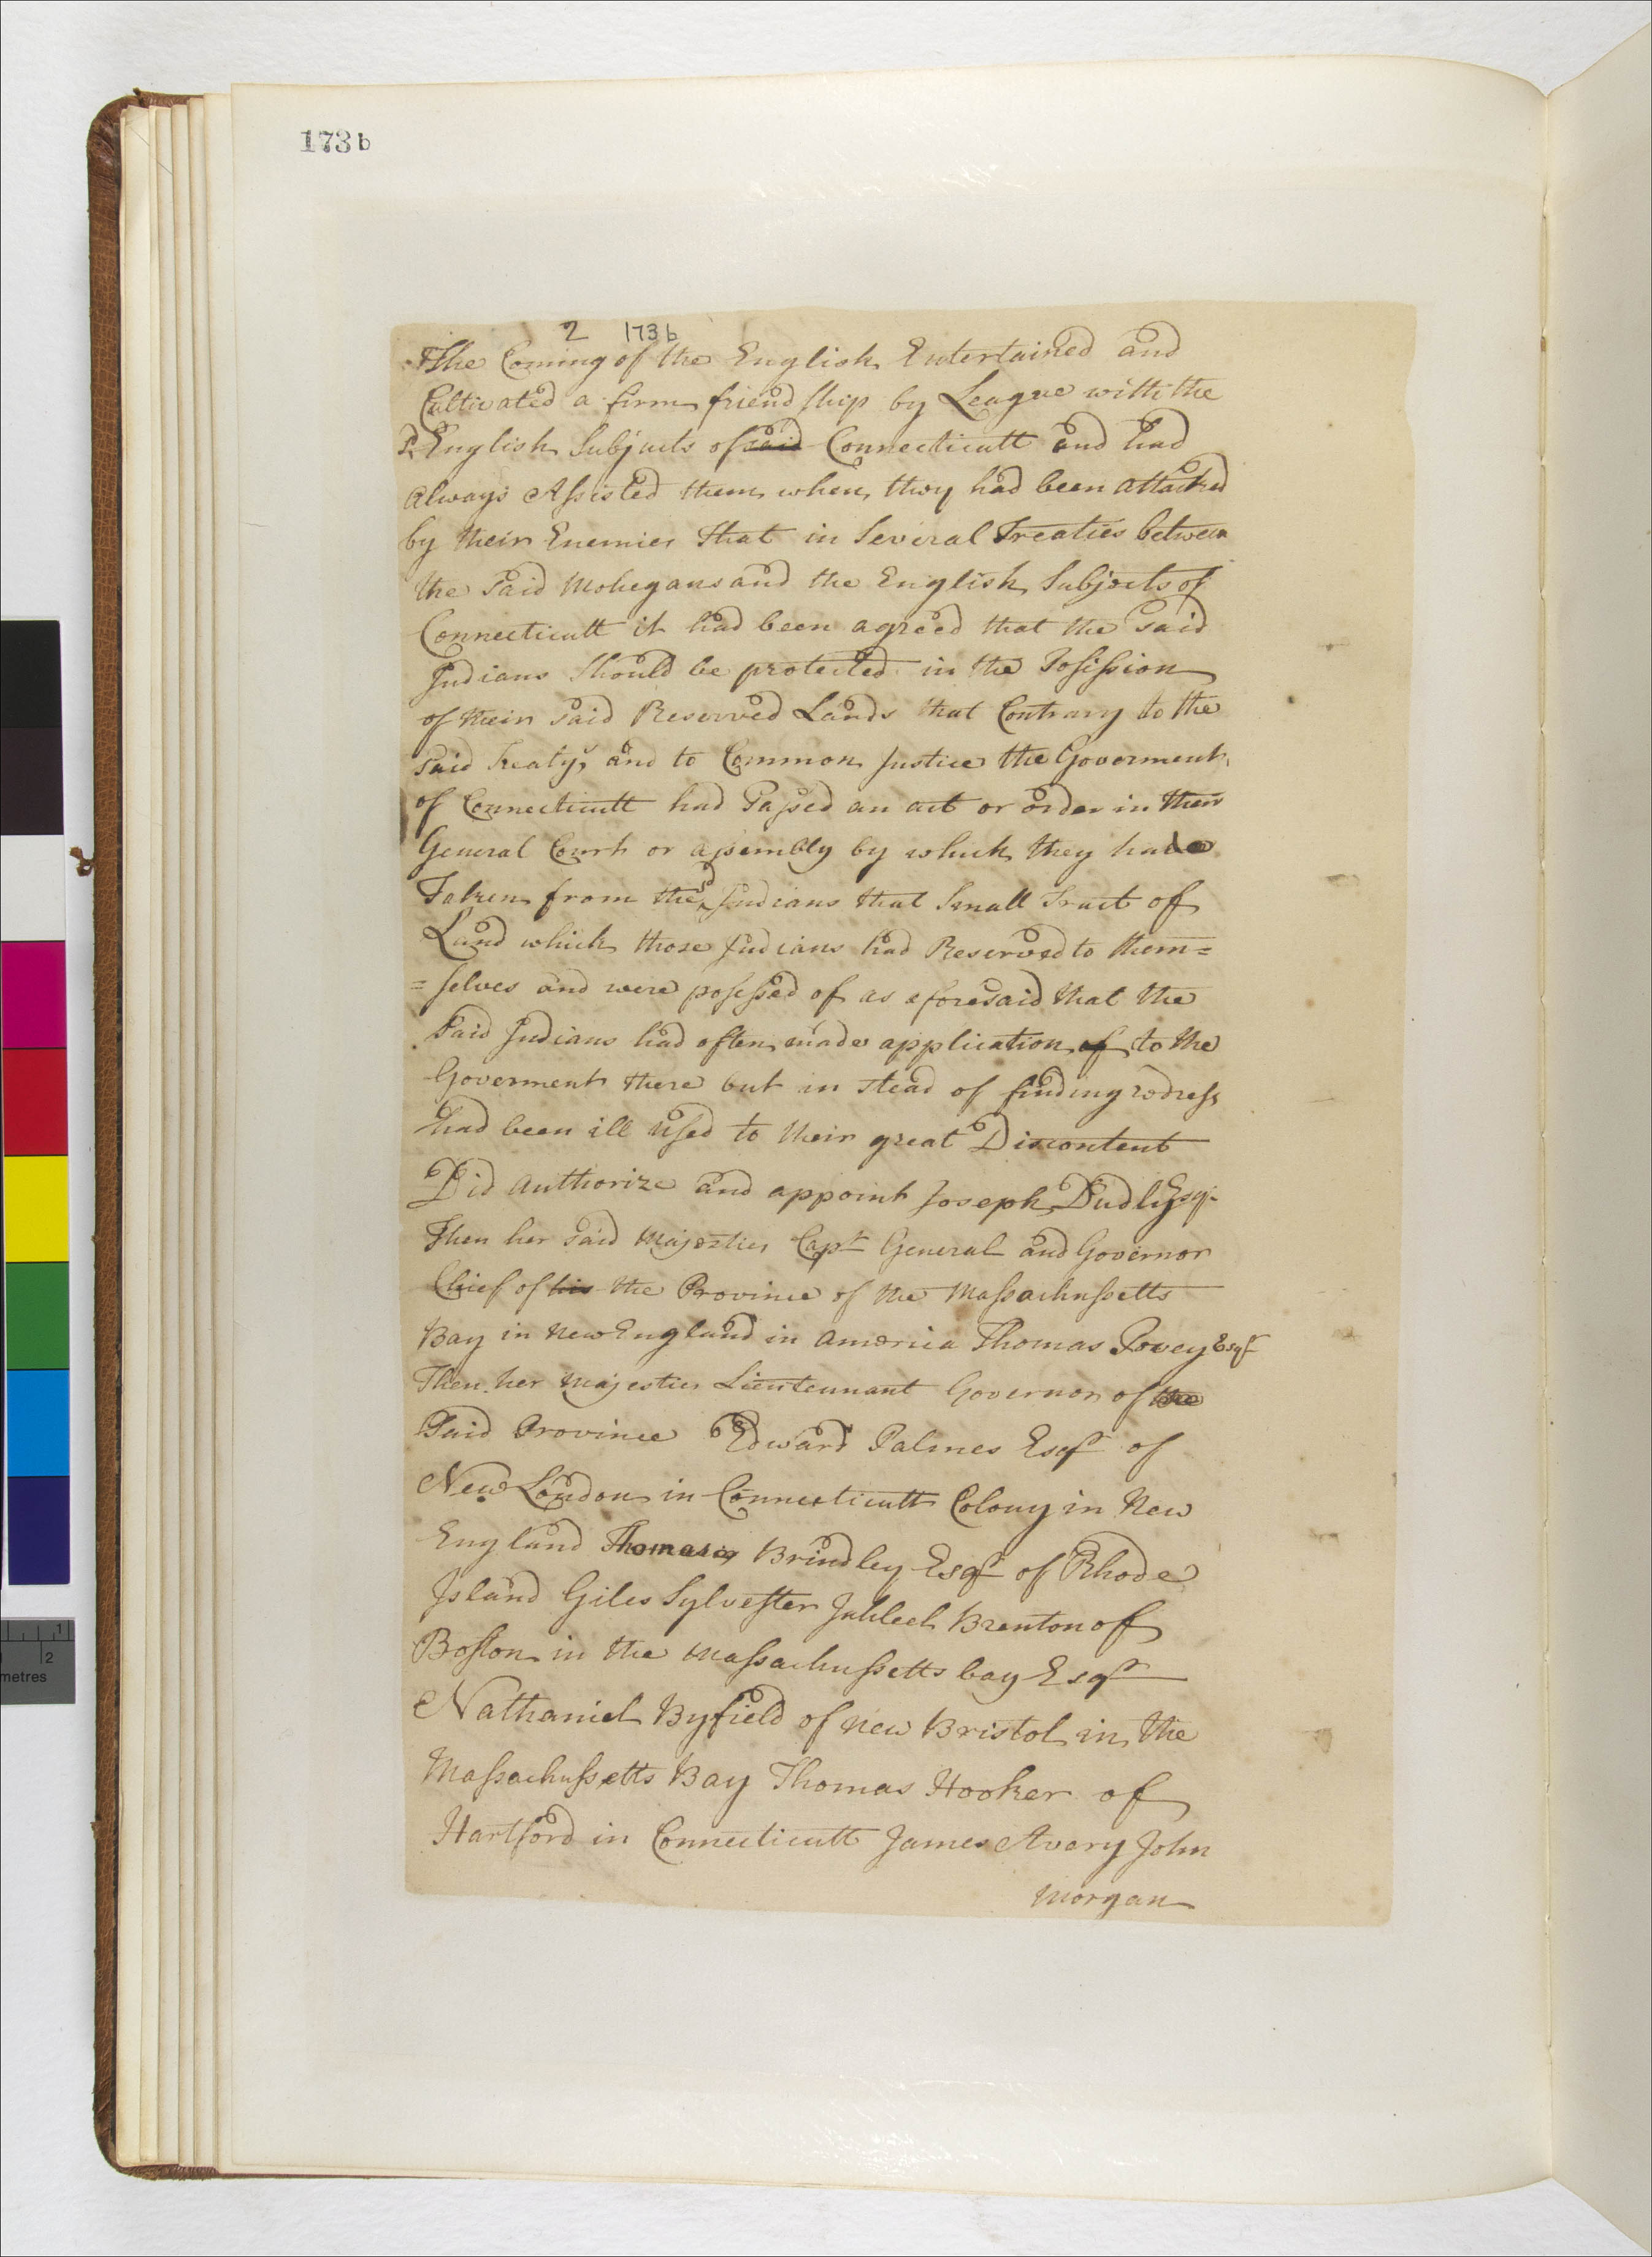 173b
2 173b
The Coming of the English Entertained and
Cultivated a firm friendship by League with the
sd English Subjects of said Connecticutt and had
always Assisted them when they had been attacked
by their Enemies That in Several Treaties between
the said Mohegans and the English Subjects of
Connecticutt it had been agreed that the said
Indians Should be protected in the Posission
of their said Reserved Lands that Contrary to the
said Treaty, and to Common Justice the Goverment
of Connecticutt had Passed an act or order in their
General Court or assembly by which they have
Taken from the sd Indians that Small Tract of
Land which those Indians had Reserved to them=
=selves and were possessed of as aforesaid that the
Said Indians had often made application of to the
Goverment there but in stead of finding redress
had been ill used to their great Discontent
Did Authorize and appoint Joseph Dudly Esqr
Then her said Majesties Capt General and Governor
Chief of his the Province of the Massachussetts
Bay in New England in America Thomas Povey Esqr
Then her Majesties Lieutennant Governor of the
Said Province Edward Palmes Esqr of
New London in Connecticutt Colony in New
England Thomas Brindley Esqr of Rhode
Island Giles Sylvester Jahleel Brenton of
Boston in the Massachussetts bay Esqr
Nathaniel Byfield of New Bristol in the
Massachussetts Bay Thomas Hooker of
Hartford in Connecticutt James Avery John
Morgan
1
2
metres